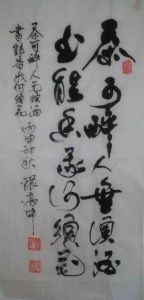 茶可醉人無須酒
書能香我何須花
茶可醉人無須酒
書能香我何須花
丙申初秋